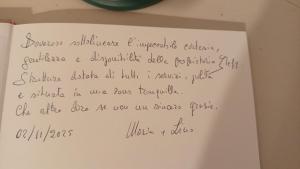 Doveroso sottolineare l'impeccabile cortesia,
gentilezza e disponibilità della proprietaria
Struttura dotata di tutti i servizi, pulita
e situata in una zona tranquilla.
Che altro dire se non un sincero grazie.
02/11/2025 Maria e